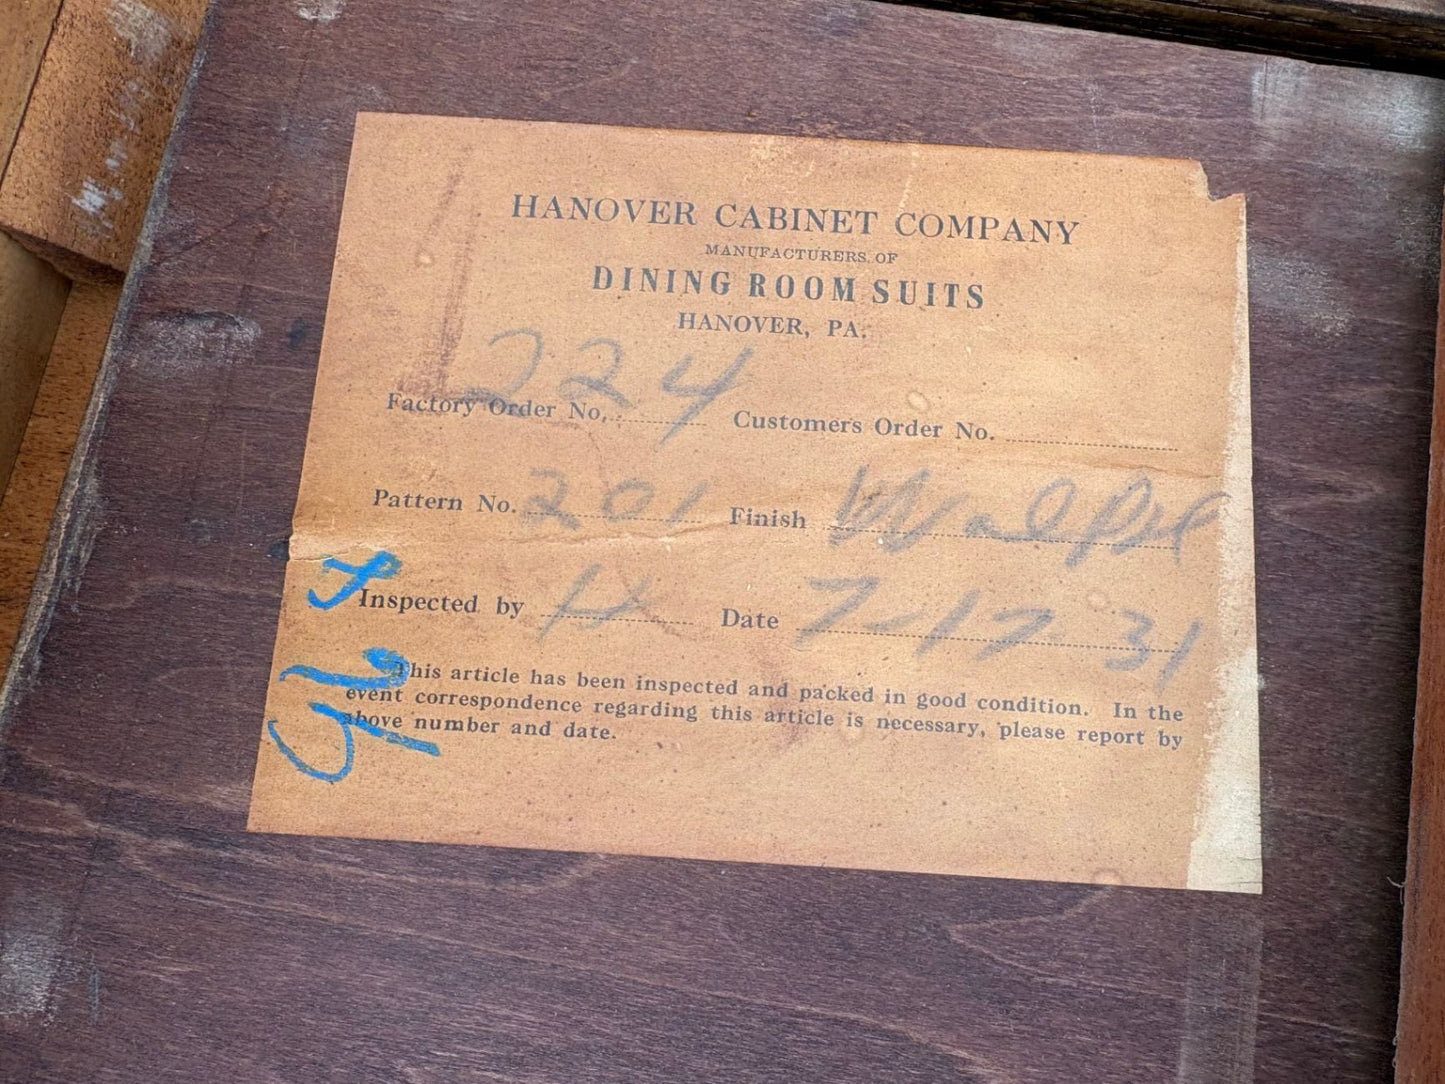 HANOVER CABINET COMPANY
MANUFACTURERS OF
DINING ROOM SUITS
HANOVER, PA.
Factory Order No. 224 Customers Order No.
Pattern No. 201 Finish
Inspected by H Date 7-17-31
This article has been inspected and packed in good condition. In the
event correspondence regarding this article is necessary, please report by
above number and date.